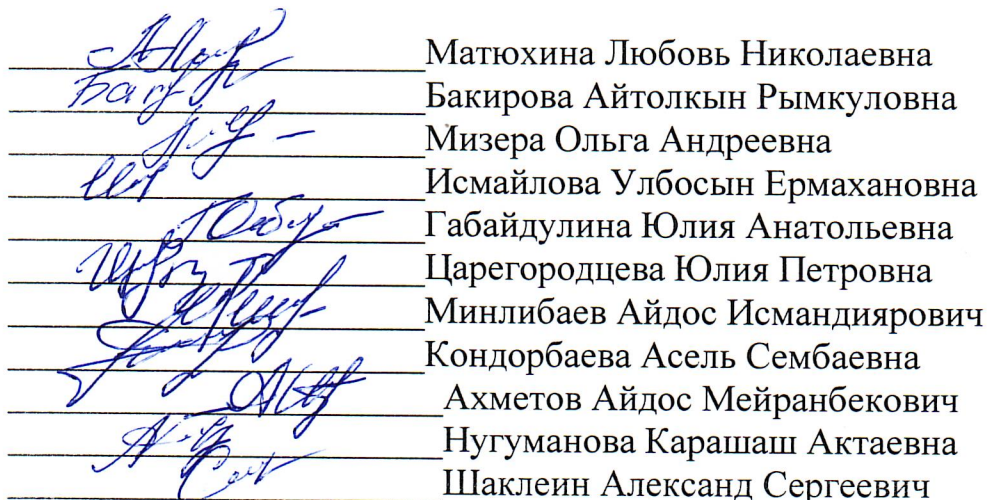 Матюхина Любовь Николаевна
Бакирова Айтолкын Рымкуловна
Мизера Ольга Андреевна
Исмайлова Улбосын Ермахановна
Габайдулина Юлия Анатольевна
Царегородцева Юлия Петровна
Минлибаев Айдос Исмандиярович
Кондорбаева Асель Сембаевна
Ахметов Айдос Мейранбекович
Нугуманова Карашаш Актаевна
Шаклеин Александ Сергеевич